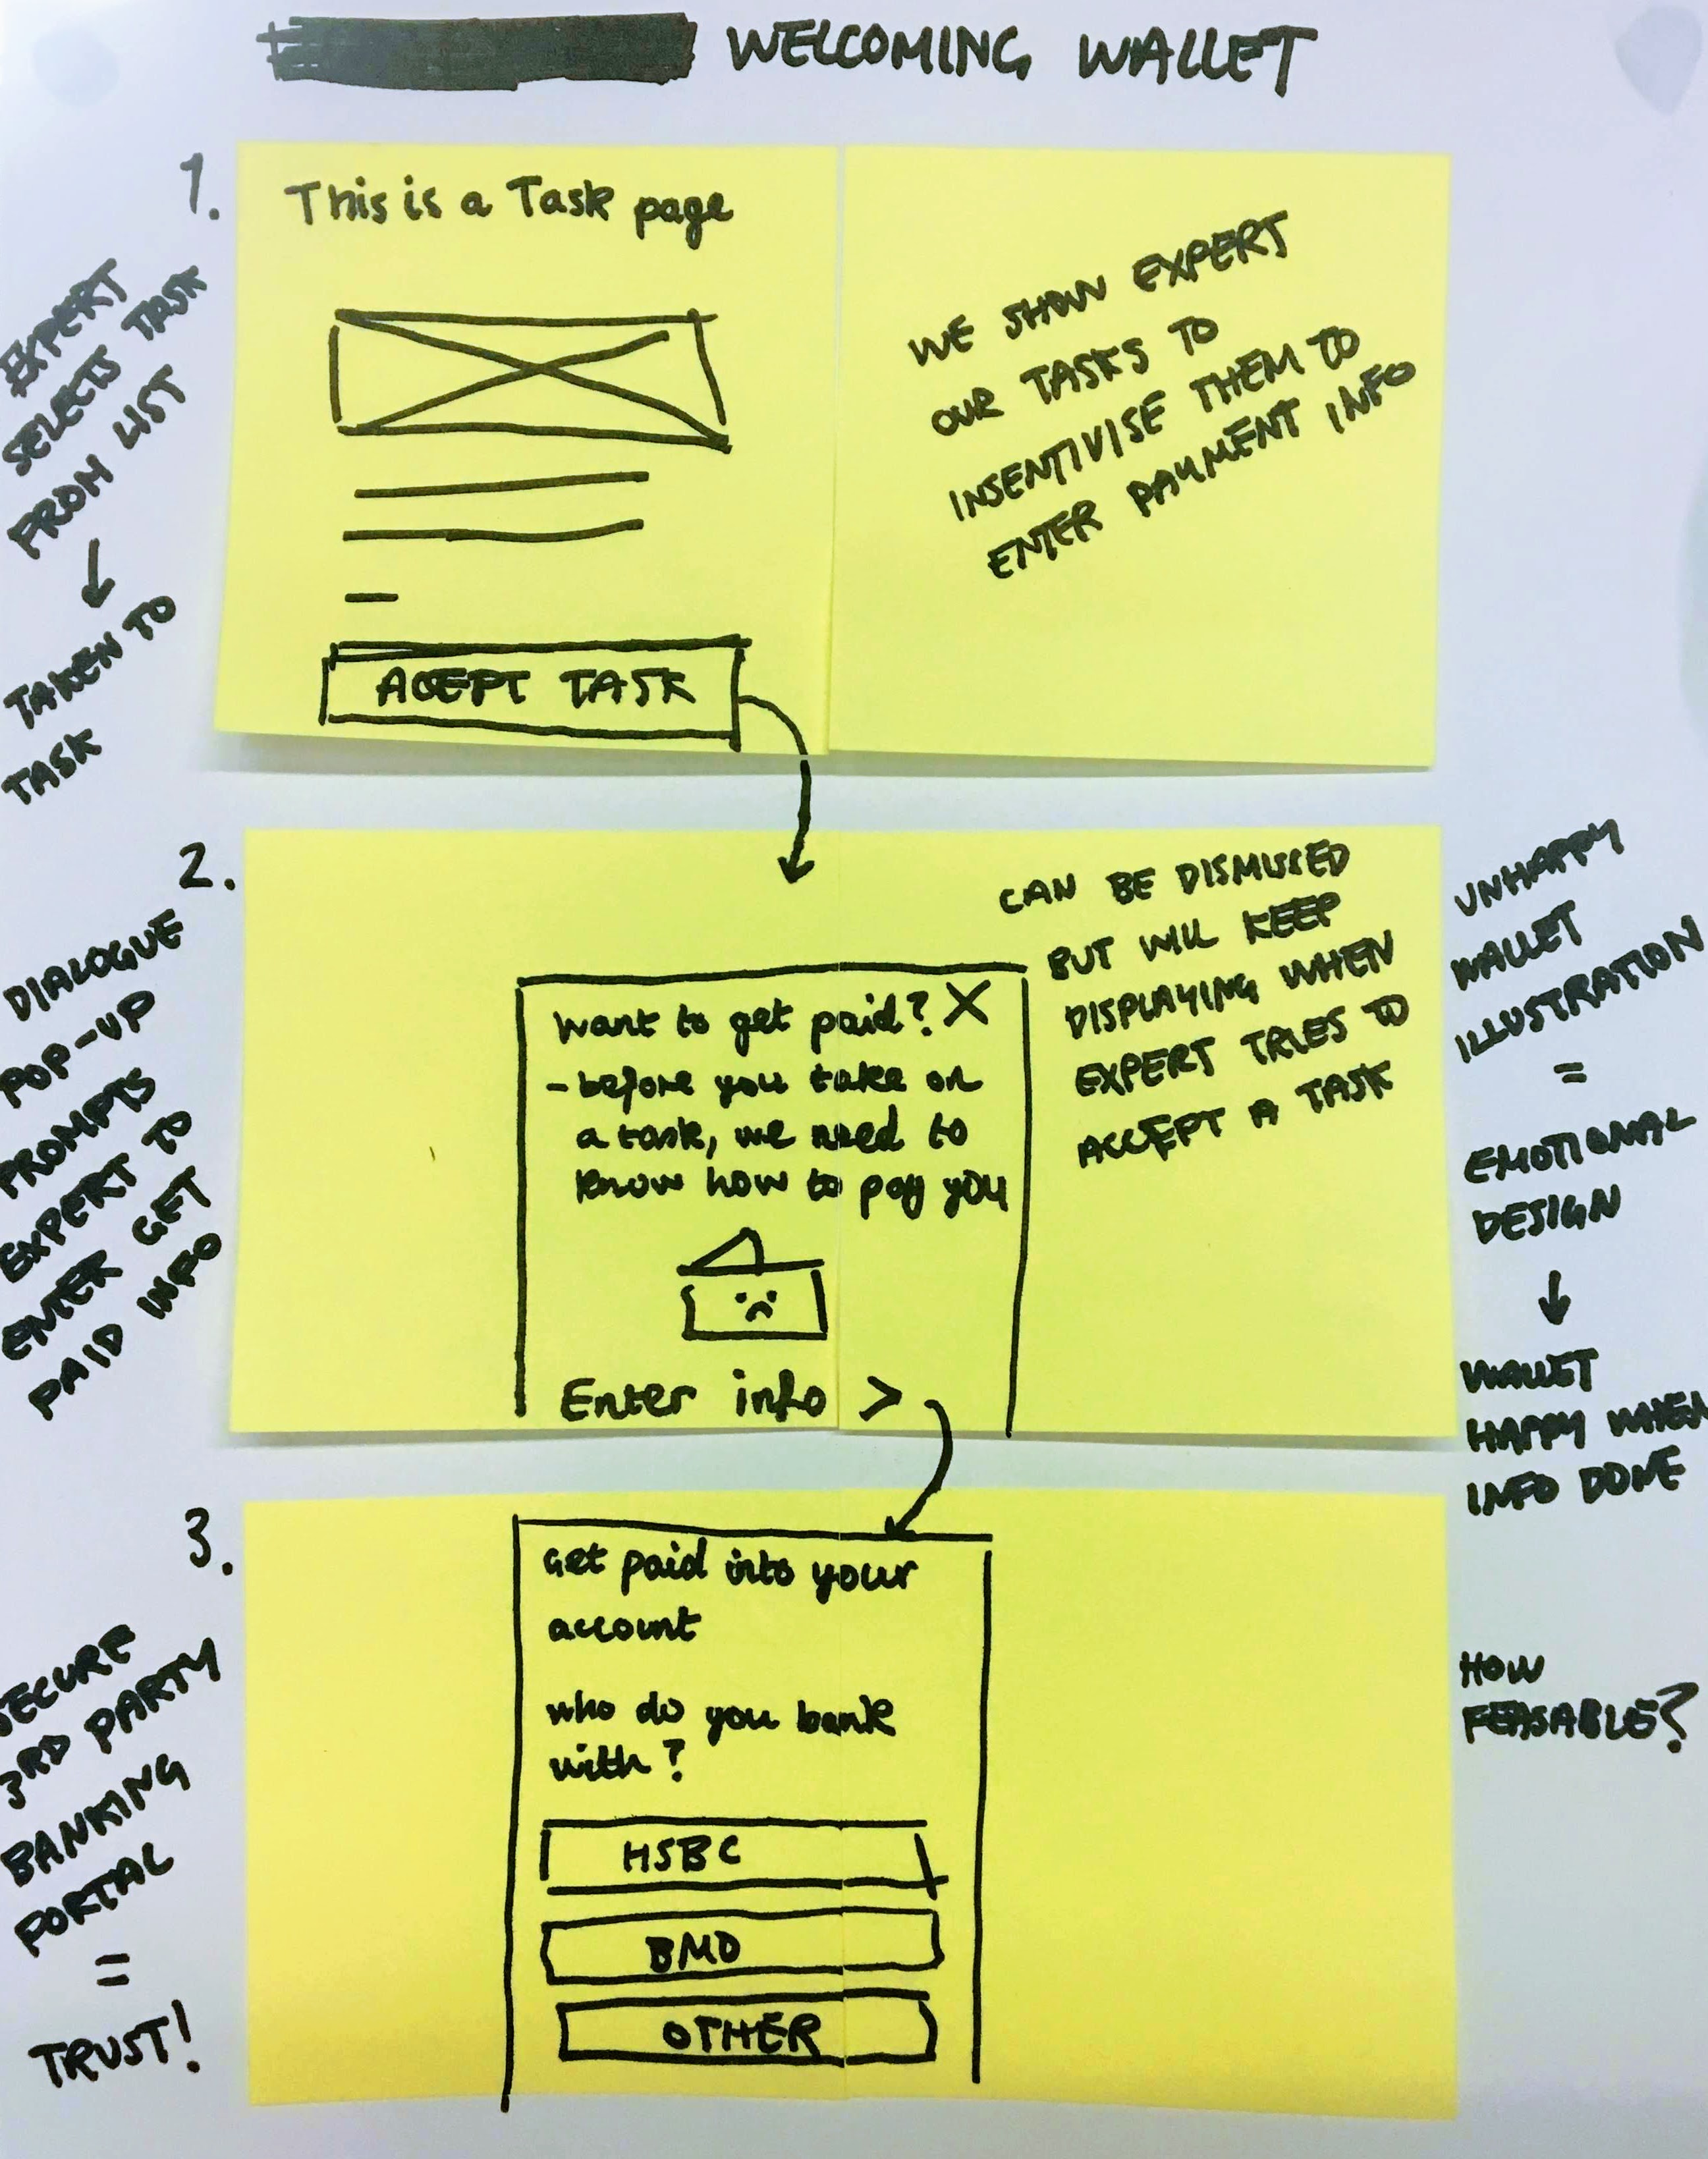 WELCOMING WALLET
1.
EXPERT
SELECTS TASK
FROM LIST
↓
TAKEN TO
TASK
This is a Task page
ACEPT TASK
WE SHOW EXPERT
OUR TASKS TO
INSENTIVISE THEM TO
ENTER PAYMENT INFO
2.
DIALOGUE
POP-UP
PROMPTS
EXPERT TO
ENTER GET
PAID INFO
Want to get paid? X
- before you take on
a task, we need to
know how to pay you
Enter info >
CAN BE DISMISSED
BUT WILL KEEP
DISPLAYING WHEN
EXPERT TRIES TO
ACCEPT A TASK
UNHAPPY
WALLET
ILLUSTRATION
=
EMOTIONAL
DESIGN
↓
WALLET
HAPPY WHEN
INFO DONE
3.
SECURE
3RD PARTY
BANKING
PORTAL
=
TRUST!
Get paid into your
account
who do you bank
with?
HSBC
BMO
OTHER
HOW
FEASABLE?